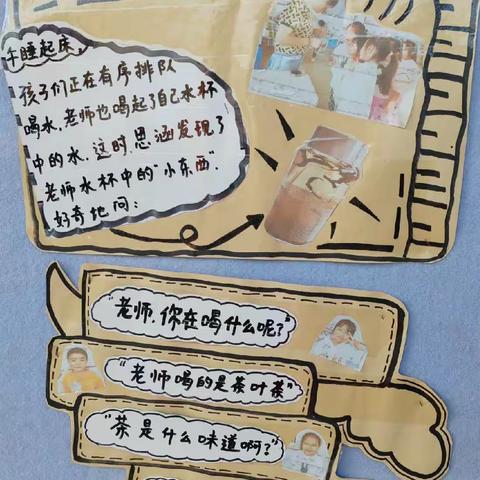 午睡起床,
孩子们正在有序排队
喝水,老师也喝起了自己水杯
中的水,这时,思涵发现了
老师水杯中的“小东西”,
好奇地问:
“老师,你在喝什么呢?”
“老师喝的是茶叶茶”
“茶是什么味道啊?”